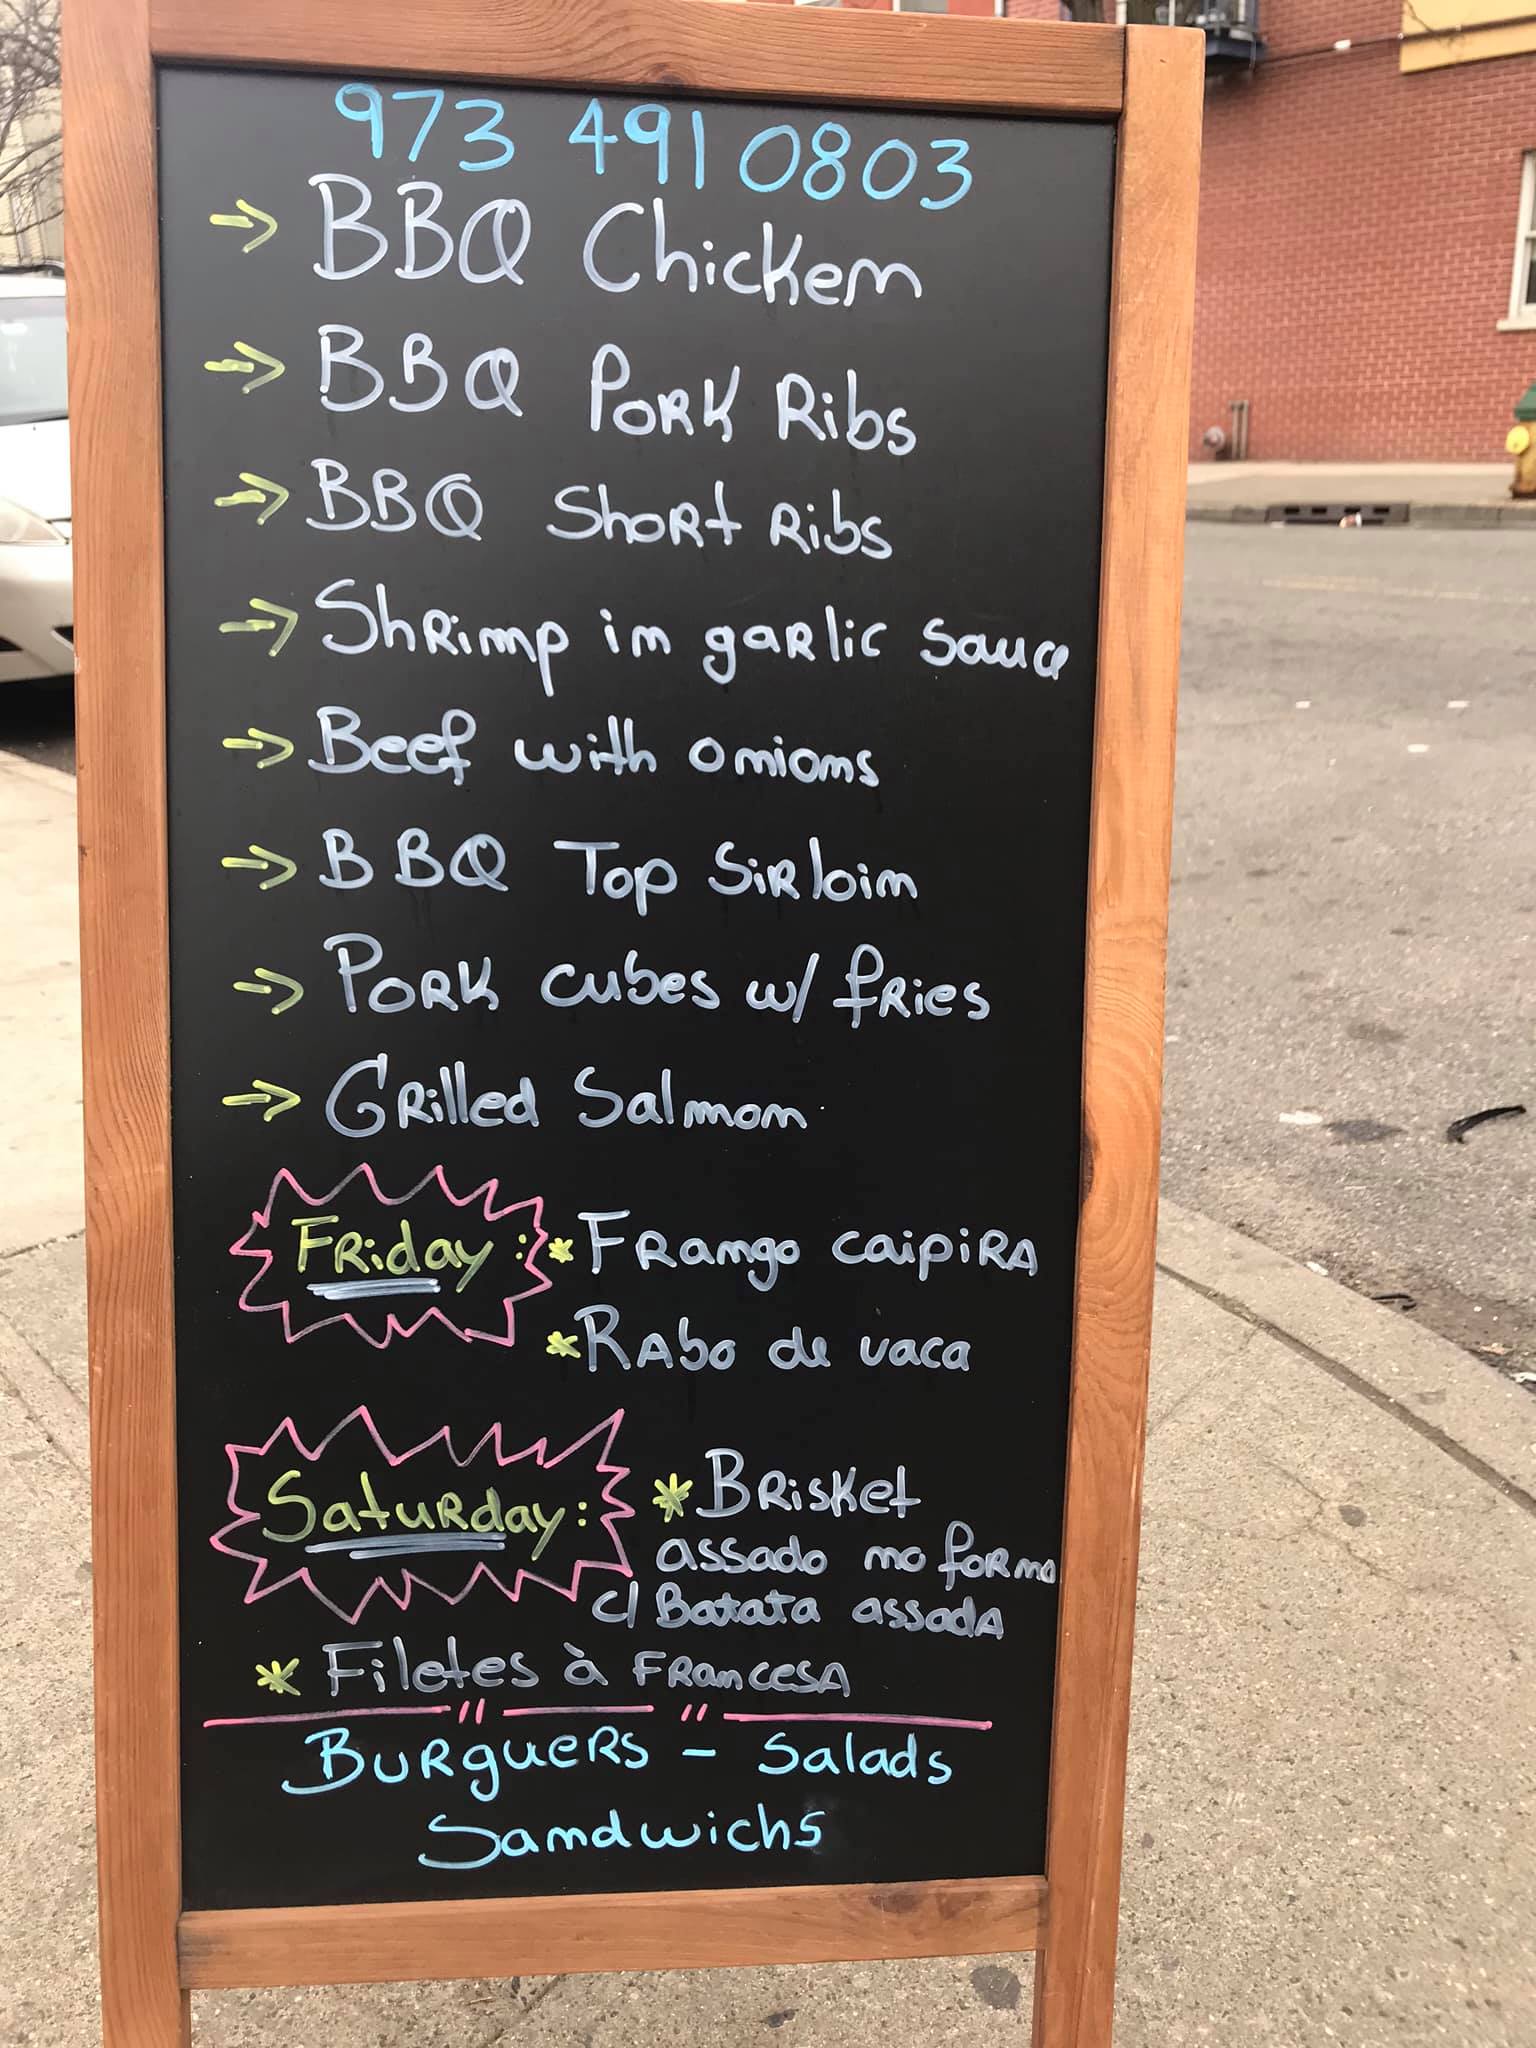 973 491 0803
→ BBQ Chicken
→ BBQ Pork Ribs
→ BBQ Short Ribs
→ Shrimp in garlic sauce
→ Beef with onions
→ BBQ Top Sirloin
→ Pork cubes w/ fries
→ Grilled Salmon
Friday: * Frango caipira
* Rabo de vaca
Saturday: * Brisket
assado no forno
c/ Batata assada
* Filetes à Francesa
Burguers - Salads
Sandwichs